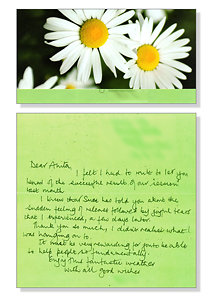 Dear Anita
I felt I had to write to let you
know of the successful result of our session
last month.
I know that Susa has told you about the
sudden feeling of release followed by joyful tears
that I experienced, a few days later.
Thank you so much, I didn't realise what I
was hanging on to.
It must be very rewarding for you to be able
to help people so fundamentally.
Enjoy this fantastic weather
with all good wishes